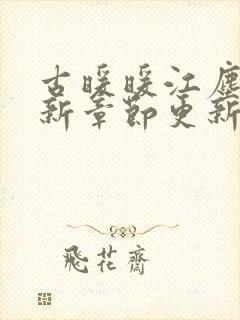 古暖暖江塵
新章節更新
飛花齋